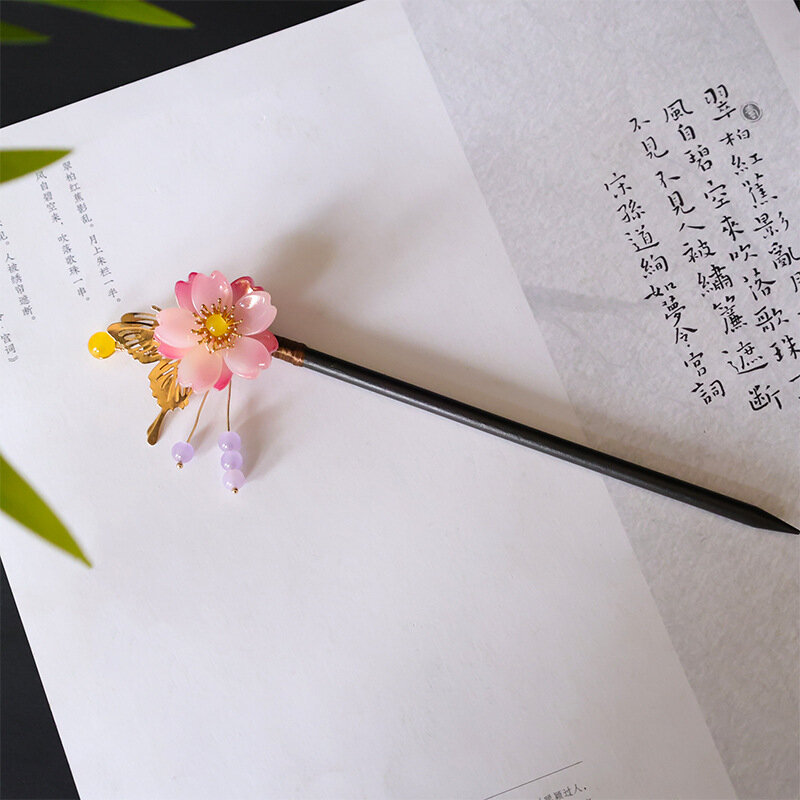 翠柏紅蕉影亂月
風自碧空來吹落歌珠一
不見不見人被繡簾遮斷
宋孫道絢如夢令宮詞
翠柏红蕉影乱。月上朱栏一半。
风自碧空来，吹落歌珠一串。
见。人被绣帘遮断。
宫词）
颖过人，